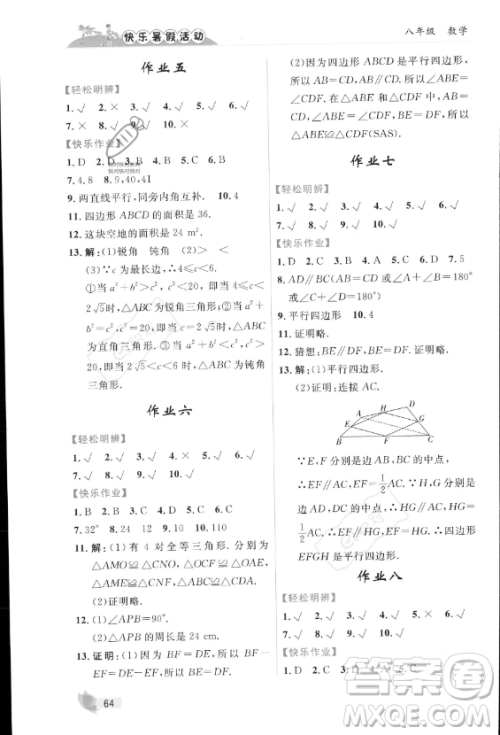 快乐暑假活动
八年级 数学
作业五
【轻松明辨】
1.√ 2.× 3.× 4.√ 5.√ 6.√
7.× 8.√ 9.√ 10.√
【快乐作业】
1.D 2.D 3.B 4.D 5.C 6.D
7.4.8 8.9,40,41
9.两直线平行，同旁内角互补. 10.4
11.四边形 ABCD 的面积是 36.
12.这块空地的面积是 24 m².
13.解:(1)锐角 钝角 (2)> <
(3)∵c 为最长边,
①当 a²+b²>c²,
时,即当 4≤c<2√5时,△ABC为锐角三角形;
②当 a²+b²=c²=20,即当 c=2√5时,△ABC
为直角三角形;
三角形.
作业六
【轻松明辨】
1.√ 2.√ 3.√ 4.√ 5.× 6.√
7.√ 8.√ 9.√ 10.√
【快乐作业】
1.D 2.D 3.B 4.C 5.A 6.B
7.32° 8.24 12 9.110° 10.20
11.解:(1)有 4 对全等三角形.分别为
△AMO≌△CNO,△OCF≌△OAE,
△AME≌△CNF,△ABC≌△CDA.
(2)证明略.
12.(1)∠APB=90°
(2)△APB 的周长是 24 cm.
13.证明:(1)因为 BF=DE,所以 BF-EF=
DE-EF,即 BE=DF.
64
(2)因为四边形 ABCD 是平行四边形,
所以 AB=CD,且 AB∥CD.所以∠ABE
=∠CDF.在△ABE 和△CDF 中,
所以△ABE≌△CDF(SAS).
作业七
【轻松明辨】
1.√ 2.√ 3.√ 4.√ 5.√ 6.√
7.× 8.√ 9.√ 10.√
【快乐作业】
1.D 2.C 3.C 4.B 5.D 6.B 7.5
8.AD∥BC(或 AB=CD 或∠A+∠B=180°
或∠C+∠D=180°)
9.平行四边形 10.4
11.证明略.
12.猜想:BE∥DF,BE=DF.证明略.
13.解:(1)平行四边形.
(2)证明:连接 AC.
A H D
E G
B F C
∵E,F 分别是边 AB,BC 的中点,
∴EF∥AC,且 EF=1/2AC.
同理:HG∥AC,且 HG=1/2AC,
∴EF∥HG,且 EF=HG.∴四边形
EFGH 是平行四边形.
作业八
【轻松明辨】
1.√ 2.√ 3.√ 4.× 5.√ 6.√
7.√ 8.√ 9.√ 10.√
【快乐作业】
1.D 2.D 3.B